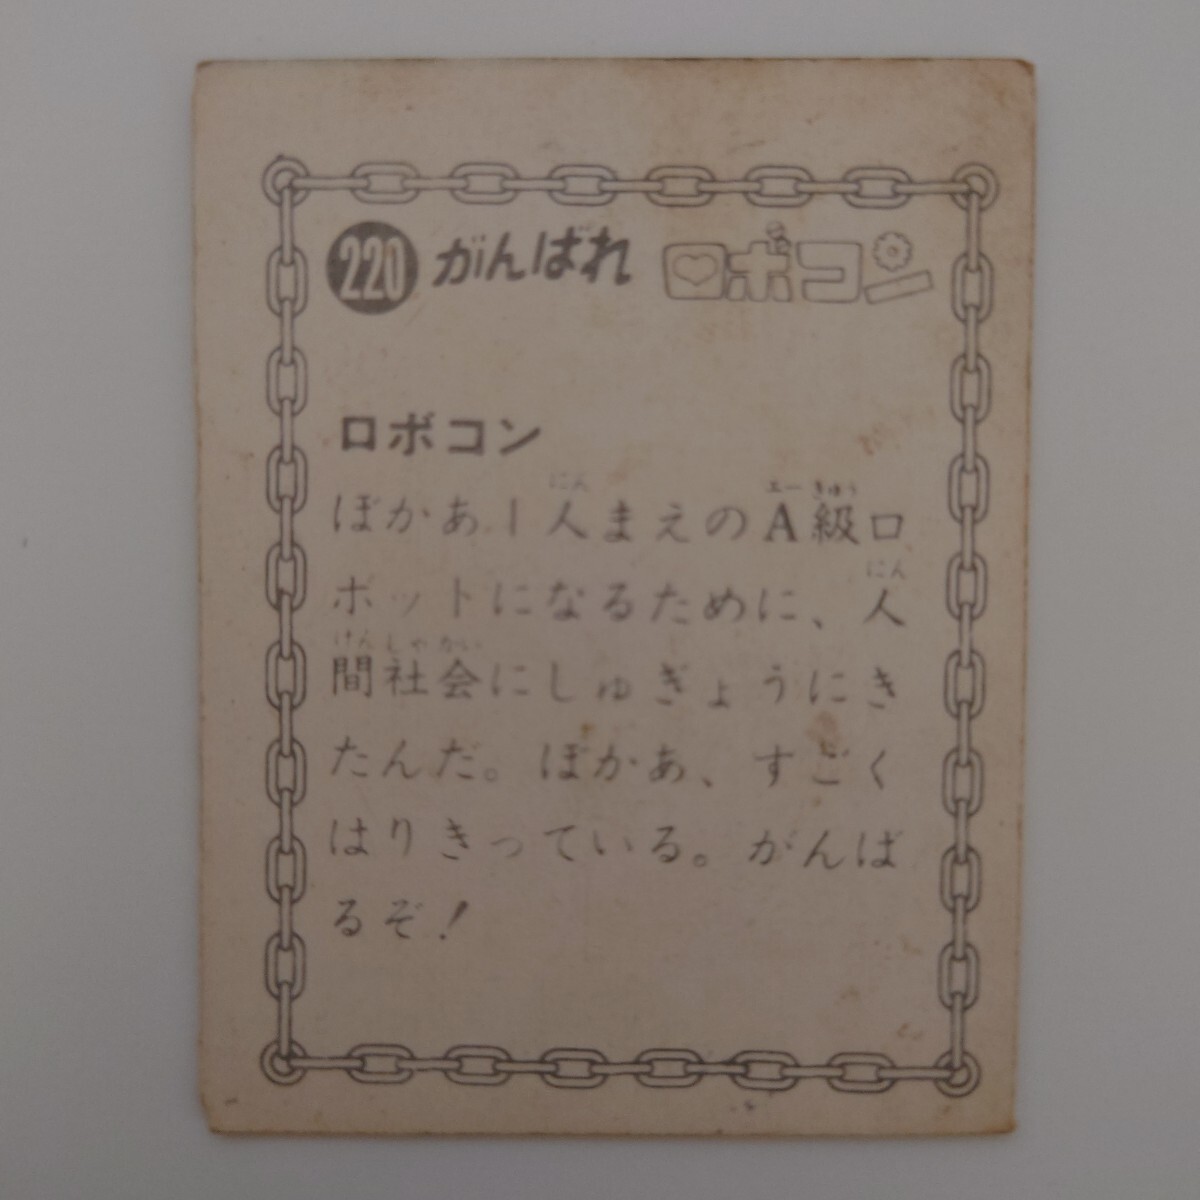 220 がんばれ ロボコン
ロボコン
にん エー きゅう
ぼかあ1人まえのA級ロ
にん
ボットになるために、人
げんしゃかい
間社会にしゅぎょうにき
たんだ。ぼかあ、すごく
はりきっている。がんば
るぞ!